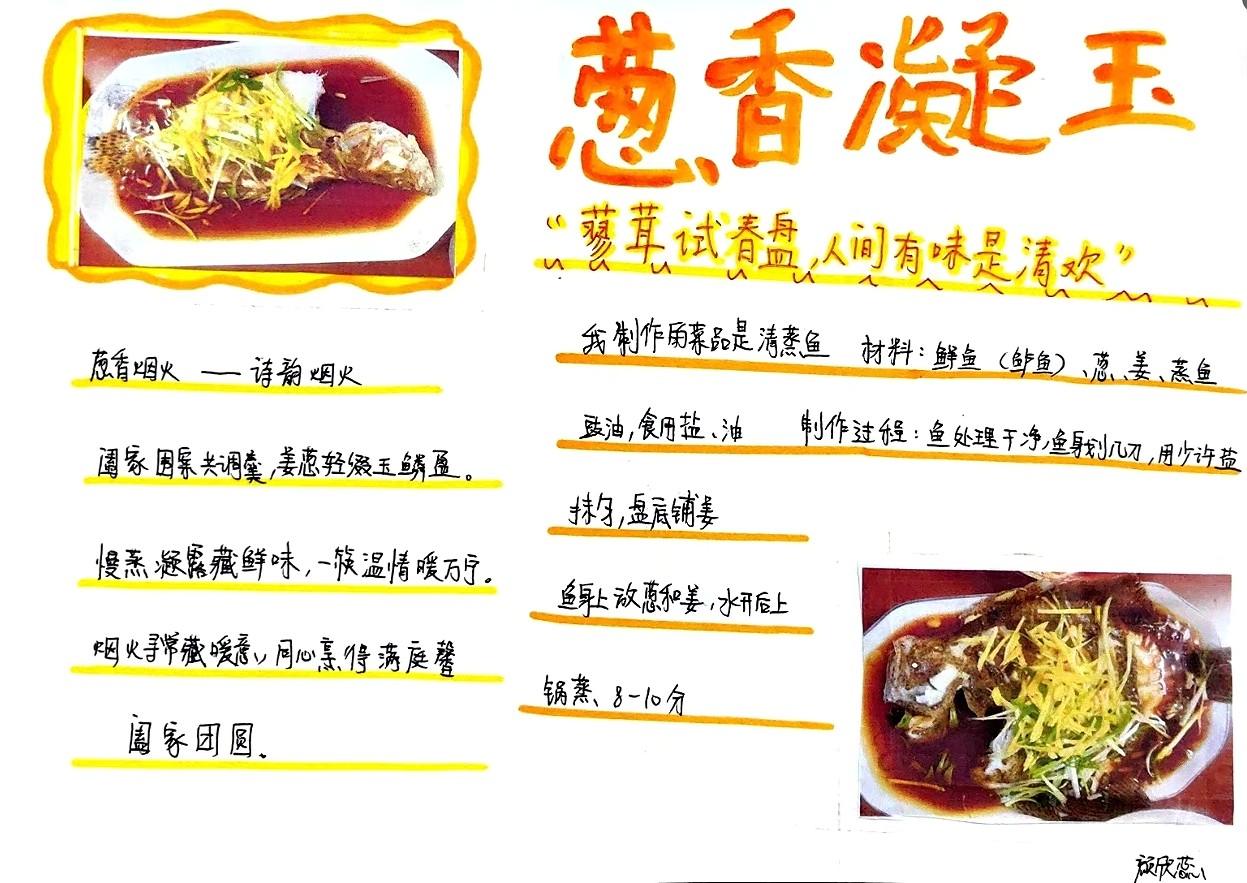 葱香凝玉
“蓼茸试春盘,人间有味是清欢”
葱香烟火 —— 诗韵烟火
阖家围案共调羹,姜葱轻缀玉鳞盈。
慢蒸凝露藏鲜味,一筷温情暖万宁。
烟火寻常藏暖意,同心烹得满庭馨
阖家团圆.
我制作的菜品是清蒸鱼 材料:鲜鱼(鲈鱼)、葱、姜、蒸鱼
豉油,食用盐、油 制作过程:鱼处理干净,鱼身划几刀,用少许盐
抹匀,盘底铺姜
鱼身上放葱和姜,水开后上
锅蒸、8-10分
欣蕊